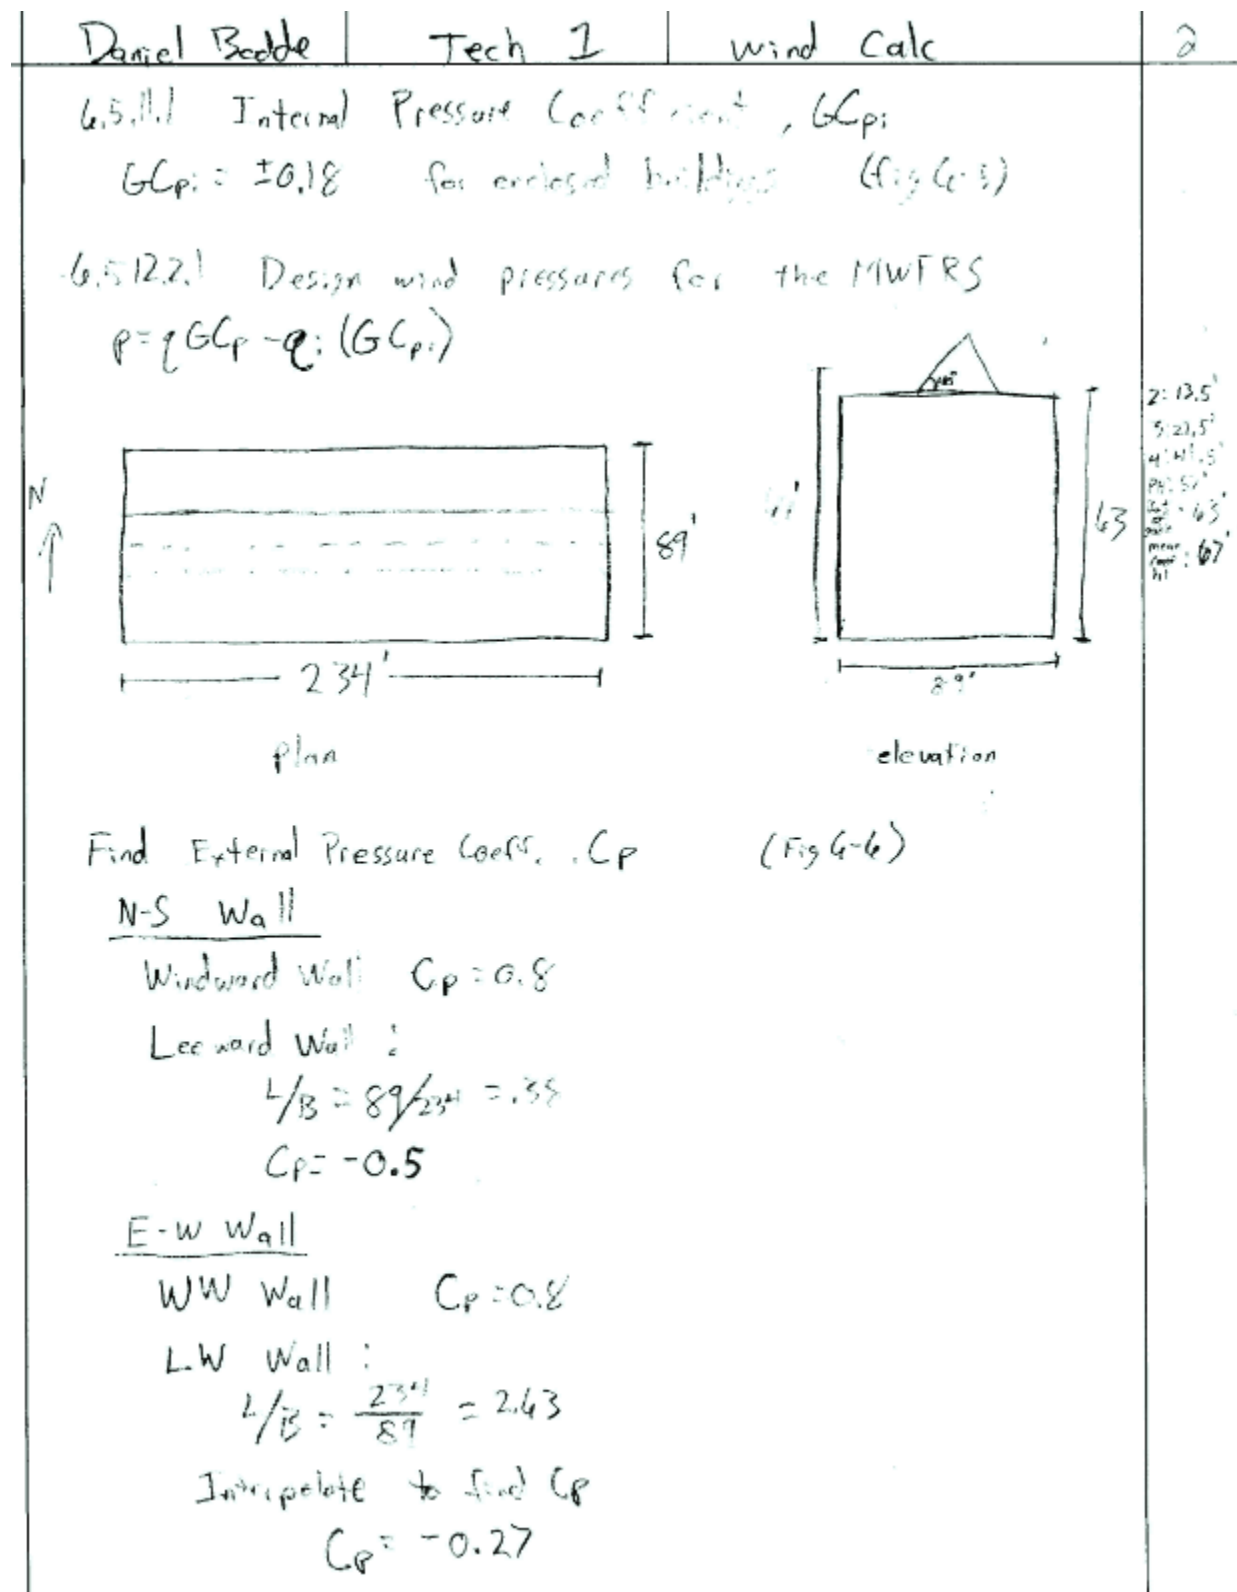 Daniel Bodde Tech 1 Wind Calc 2
6.5.11.1 Internal Pressure Coefficient, GCpi
GCpi = ±0.18 for enclosed buildings (fig 6-5)
6.5.12.2.1 Design wind pressures for the MWFRS
p = qGCp - qi (GCpi)
2: 13.5'
4: 41.5'
PH: 52'
63'
mean roof ht: 67'
N
89'
63
234'
89'
plan
elevation
Find External Pressure Coeff., Cp (Fig 6-6)
N-S Wall
Windward Wall Cp = 0.8
Leeward Wall:
L/B = 89/234 = .38
Cp = -0.5
E-W Wall
WW Wall Cp = 0.8
LW Wall:
L/B = 234/89 = 2.63
Interpolate to find Cp
Cp = -0.27